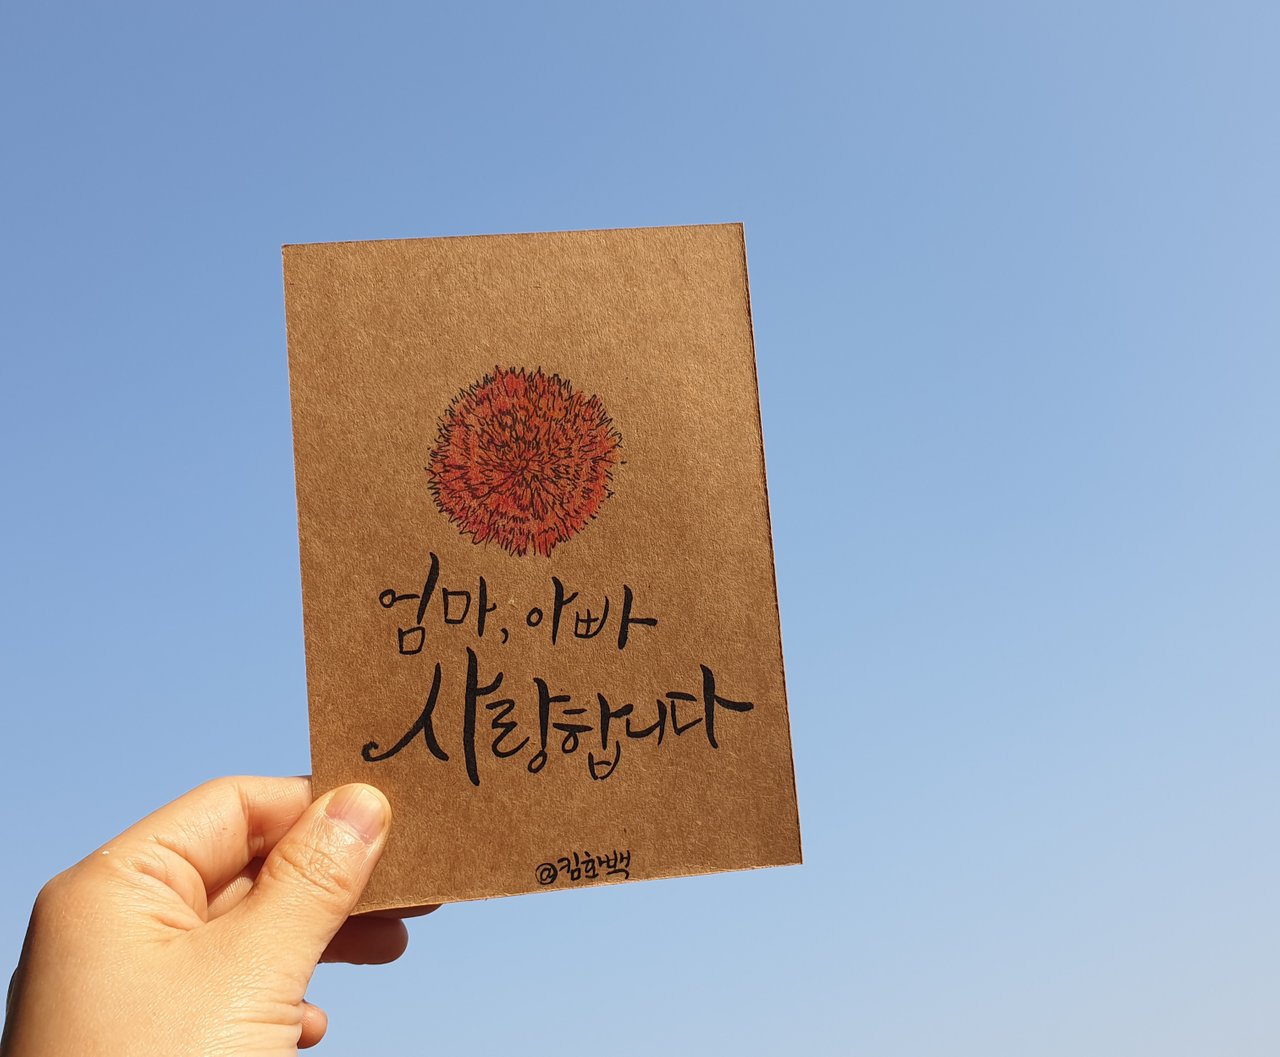 엄마, 아빠
사랑합니다
@킴효백